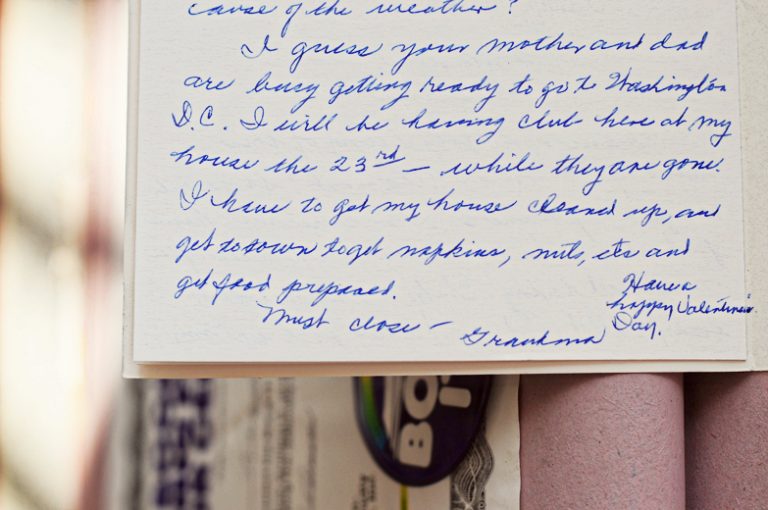 cause of the weather?
I guess your mother and dad
are busy getting ready to go to Washington
D.C. I will be having club here at my
house the 23rd — while they are gone.
I have to get my house cleaned up, and
get to town to get napkins, nuts, etc and
get food prepared.
Must close — Grandma
Have a
happy Valentines
Day.
BO